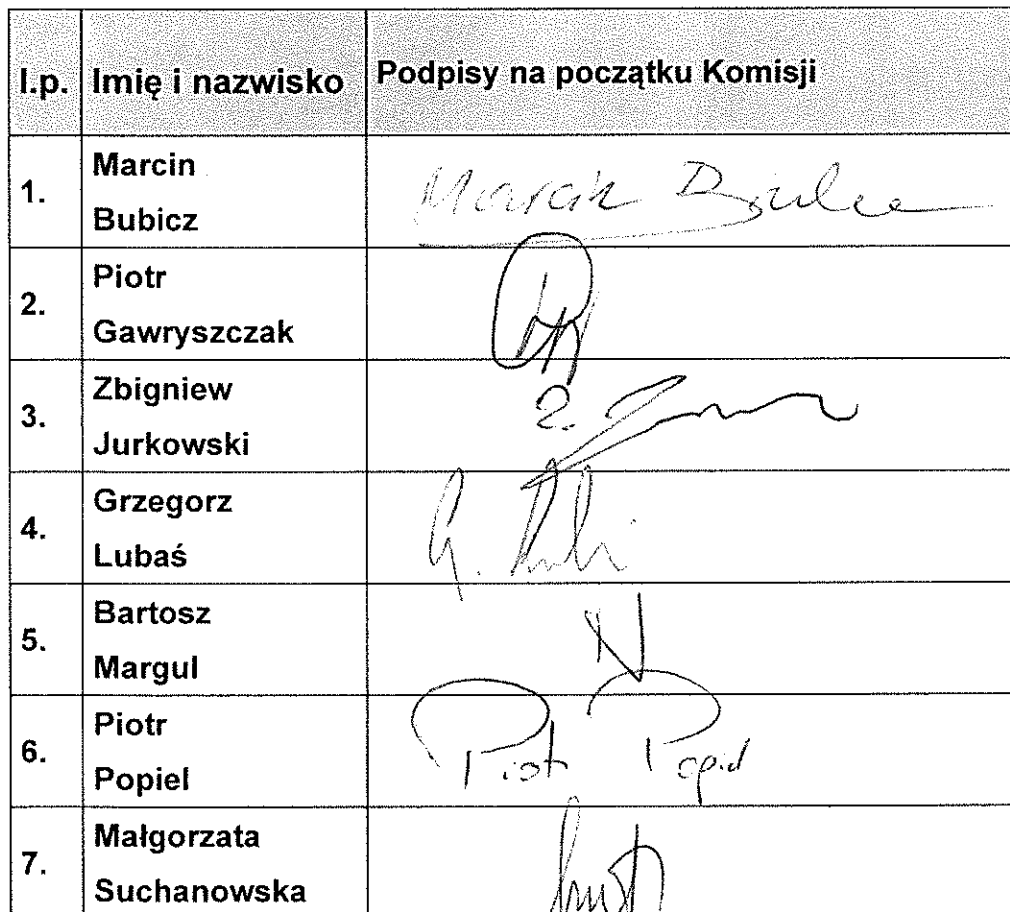 l.p. Imię i nazwisko Podpisy na początku Komisji
1. Marcin
Bubicz
Marcin
2. Piotr
Gawryszczak
3. Zbigniew
Jurkowski
4. Grzegorz
Lubaś
G.
5. Bartosz
Margul
6. Piotr
Popiel
Piotr Popiel
7. Małgorzata
Suchanowska